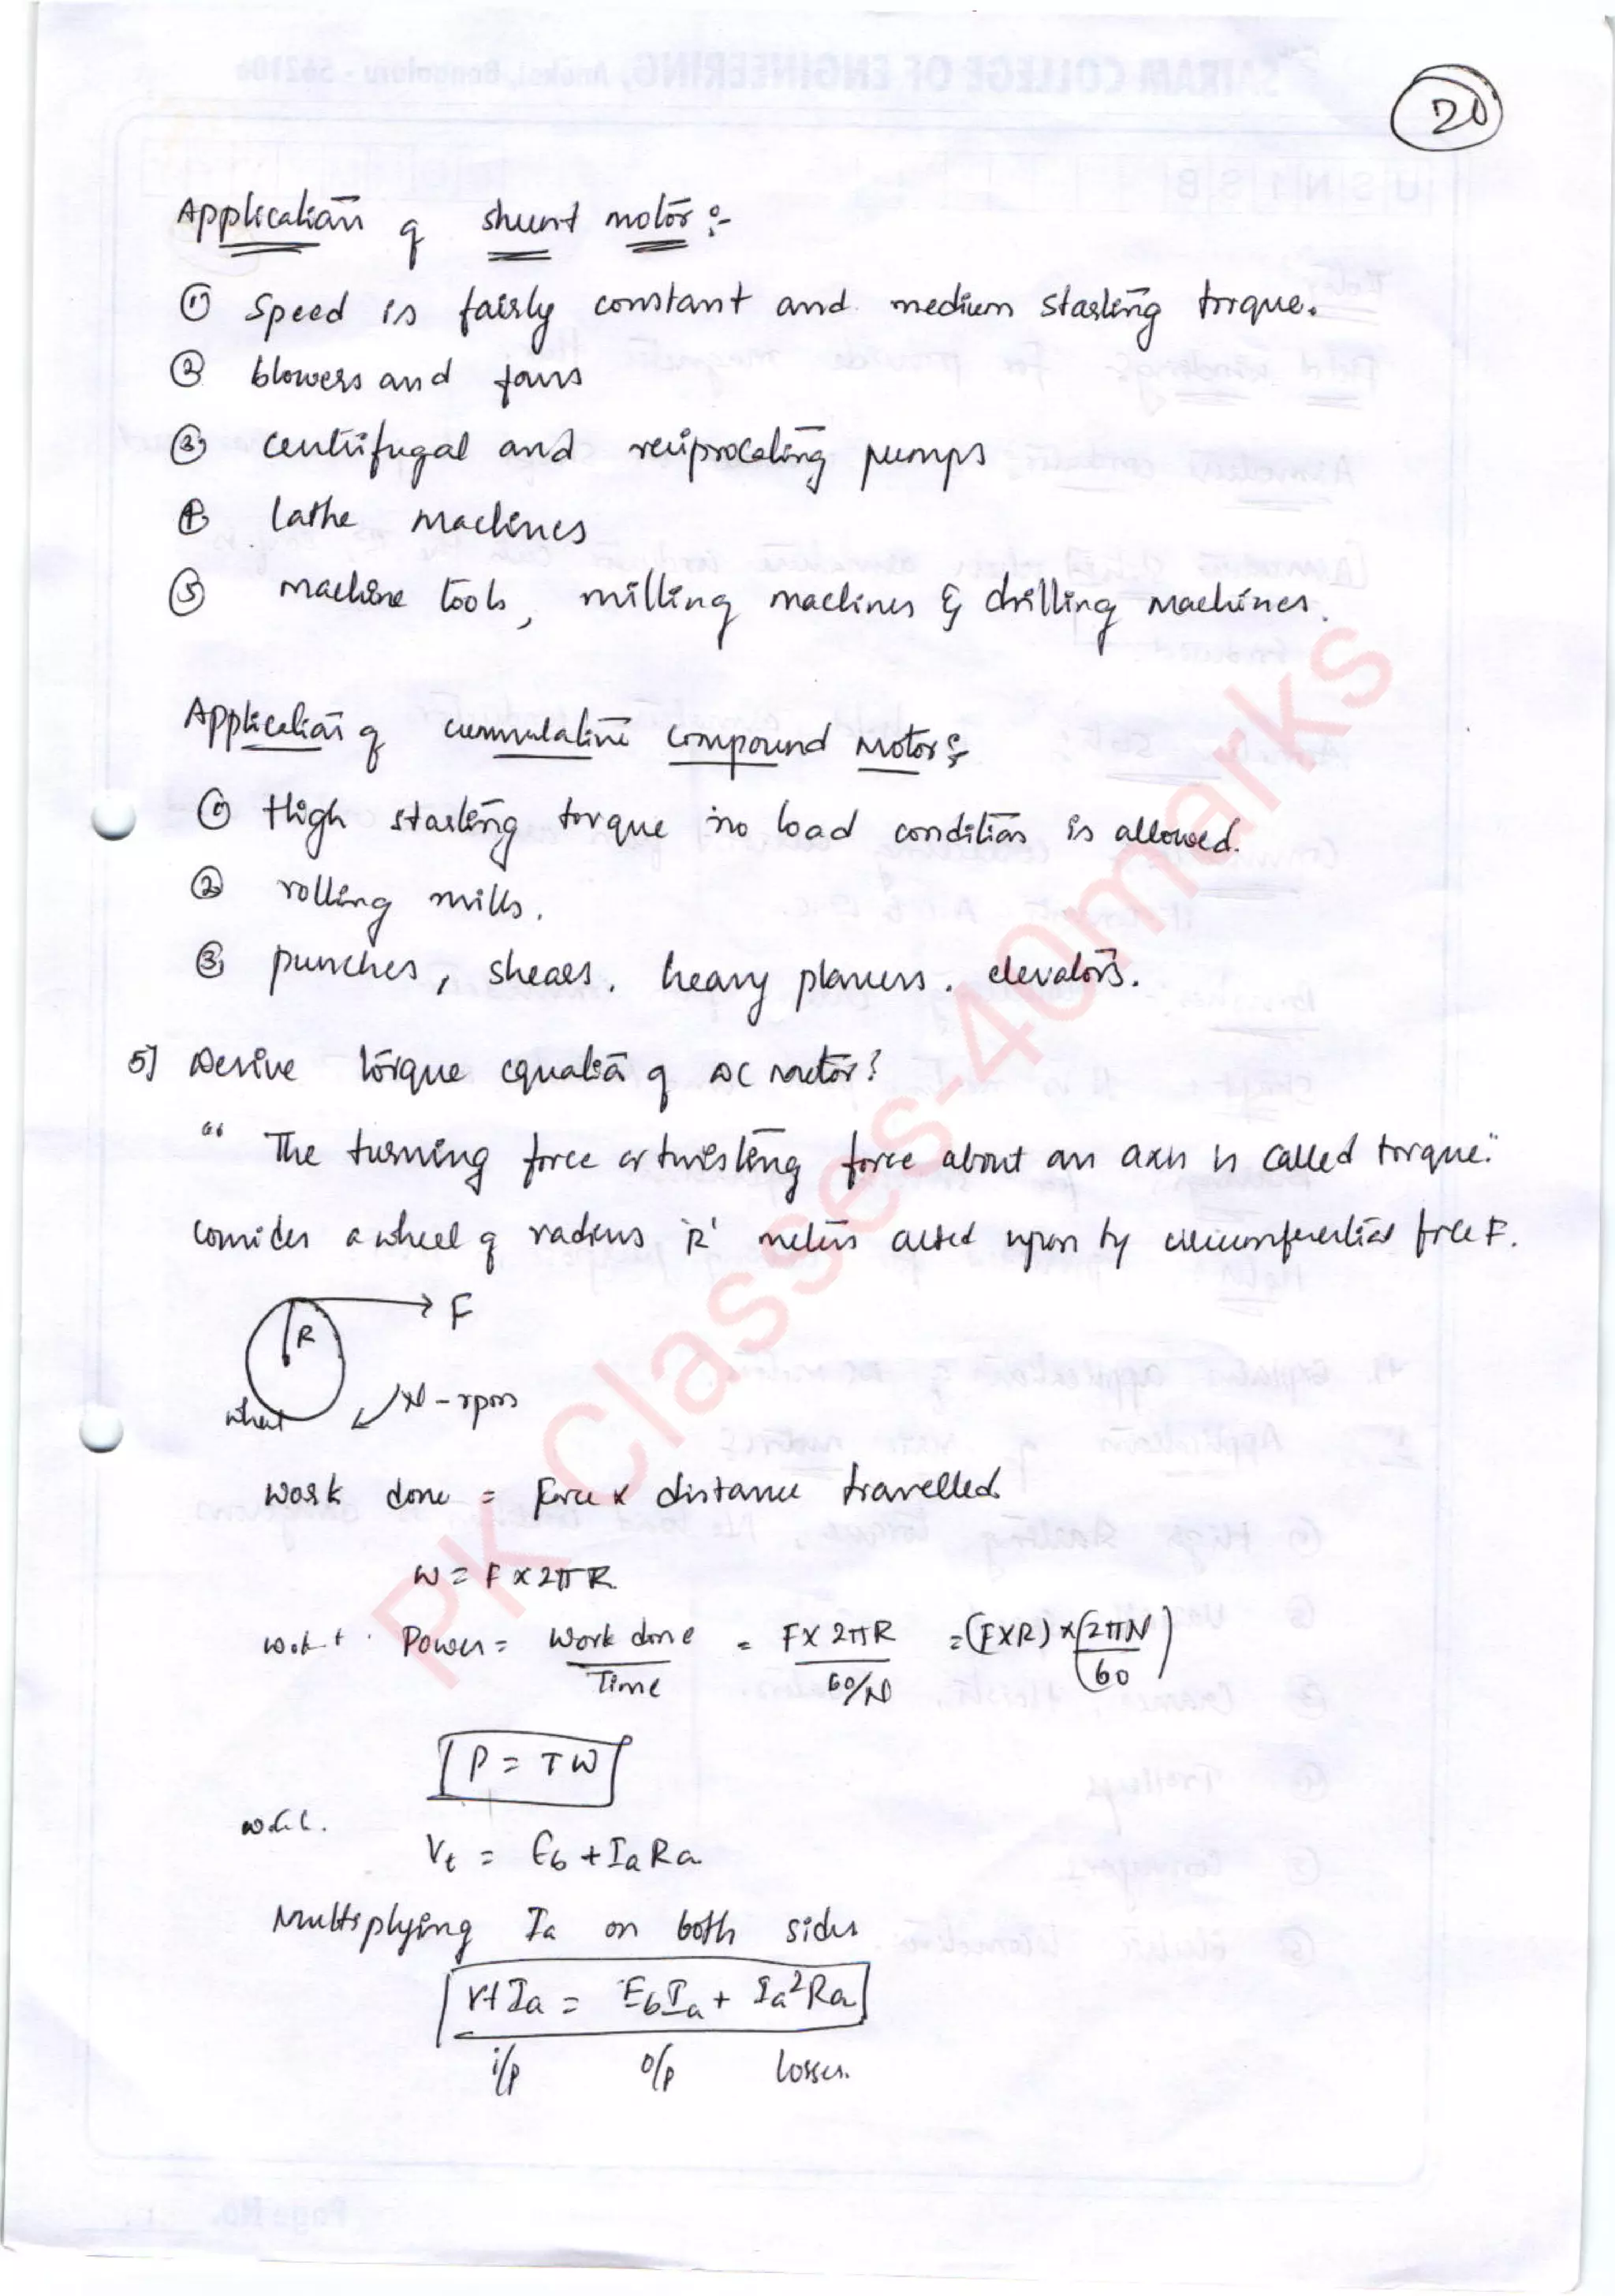 20
Application of shunt motor :-
① Speed is fairly constant and medium starting torque.
② blowers and fans
③ centrifugal and reciprocating pumps
④ Lathe machines
⑤ machine tools, milling machines & drilling machines.
Application of cummulative compound motor :-
① High starting torque no load condition is allowed.
② rolling mills.
③ punches, shears, heavy planers, elevators.
5] Derive torque equation of DC motor?
" The turning force or twisting force about an axis is called torque."
Consider a wheel of radius 'R' meters acted upon by circumferential force F.
F
R
N - rpm
wheel
Work done = Force x distance travelled
W = F x 2πR
w.k.t. Power = Work done / Time = F x 2πR / 60/N = (F x R) x (2πN / 60)
P = T W
w.k.t.
Vt = Eb + IaRa
Multiplying Ia on both sides
VtIa = EbIa + Ia²Ra
i/p o/p losses.
PK Classes-40marks
SAIRAM COLLEGE OF ENGINEERING, Anekal, Bengaluru - 562106